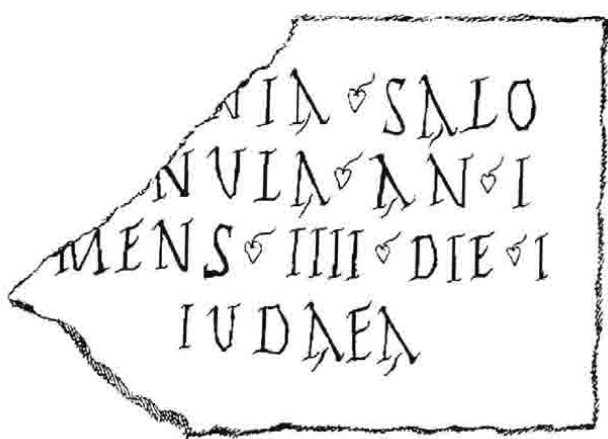 NIA ❦ SALO
NULA ❦ AN ❦ I
MENS ❦ IIII ❦ DIE ❦ I
IUDAEA